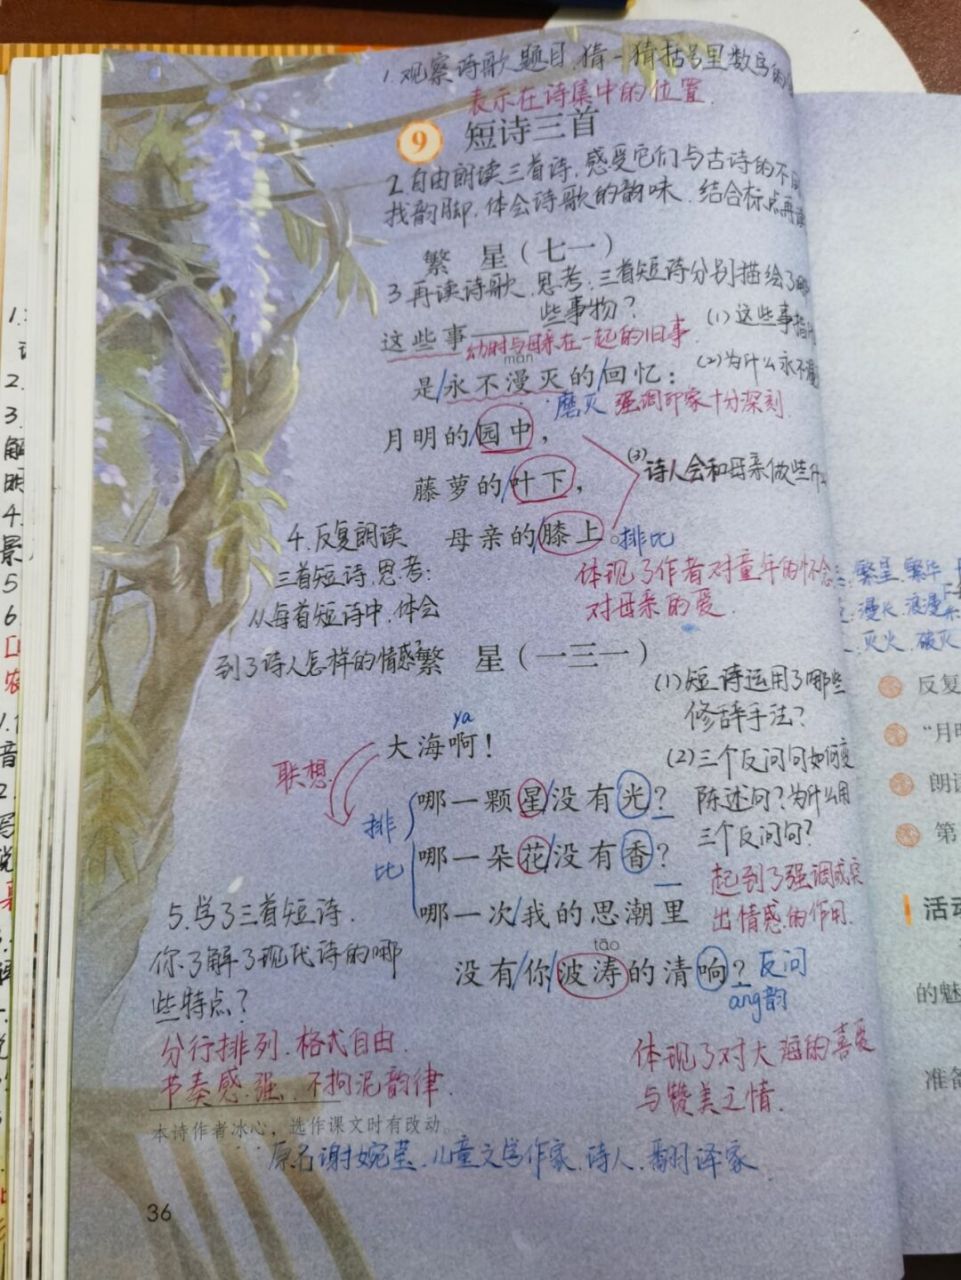 1.观察诗歌题目,猜一猜括号里数字的
表示在诗集中的位置.
9 短诗三首
2.自由朗读三首诗,感受它们与古诗的不
找韵脚.体会诗歌的韵味.结合标点再读
繁 星(七一)
3.再读诗歌,思考:三首短诗分别描绘了哪
些事物?
这些事——
幼时与母亲在一起的旧事.
(1)这些事指什
màn
是/永不漫灭的/回忆:
(2)为什么永不漫
磨灭 强调印象十分深刻.
月明的/园中,
(3)诗人会和母亲做些什
藤萝的/叶下,
母亲的/膝上。
排比
4.反复朗读
三首短诗,思考:
从每首短诗中,体会
到了诗人怎样的情感?
体现了作者对童年的怀念
对母亲的爱
繁 星(一三一)
(1)短诗运用了哪些
修辞手法?
ya
大海啊!
联想.
(2)三个反问句如何变
陈述句?为什么用
三个反问句?
排比
哪一颗星/没有光?
哪一朵花/没有香?
哪一次/我的思潮里
tāo
没有/你/波涛的清响?
反问
ang韵
起到了强调或突
出情感的作用.
5.学了三首短诗.
你了解了现代诗的哪
些特点?
分行排列.格式自由.
节奏感强.不拘泥韵律.
体现了对大海的喜爱
与赞美之情.
本诗作者冰心,选作课文时有改动。
原名谢婉莹.儿童文学作家.诗人.翻译家
36
1.
2.
3.
解
明
4.
景
5
6.
繁星 繁华
漫长.浪漫
灭火.破灭
反复
“月明
朗读
第
活动
的魅
准备